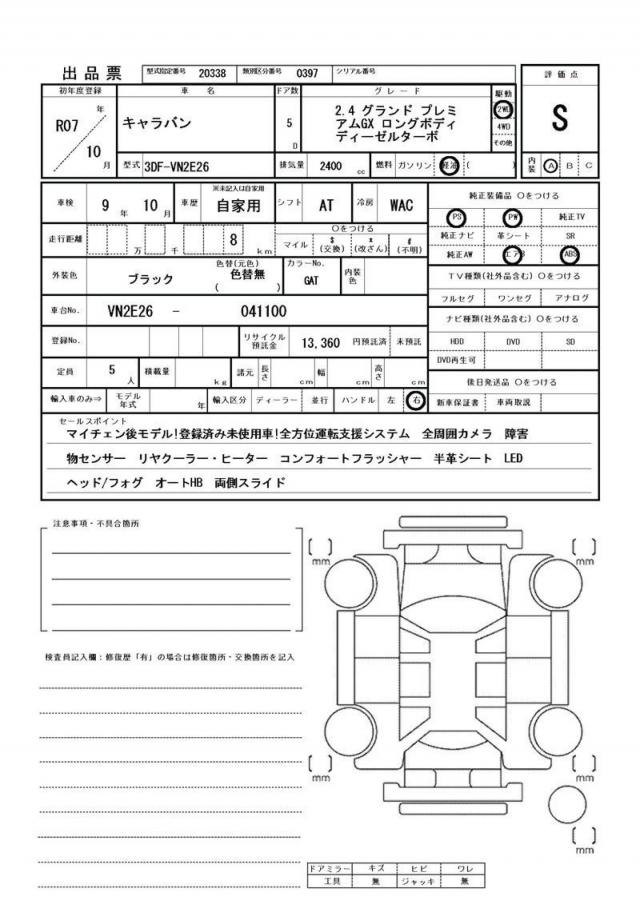 出品票 型式指定番号 20338 類別区分番号 0397 シリアル番号
初年度登録 車名 ドア数 グレード 駆動 評価点
R07 年 10 月
キャラバン
5 D
2.4 グランド プレミ
アムGX ロングボディ
ディーゼルターボ
2WD
4WD
その他
S
型式 3DF-VN2E26 排気量 2400 cc 燃料 ガソリン 軽油 ( )
内装 A B C
車検 9 年 10 月 車歴 ※未記入は自家用 自家用 シフト AT 冷房 WAC
純正装備品 〇をつける
PS PW 純正TV
純正ナビ 革シート SR
純正AW エアB ABS
走行距離 万 千 8 km
〇をつける
マイル $(交換) *(改ざん) #(不明)
外装色 ブラック 色替(元色) 色替無 ( ) カラーNo. GAT 内装色
TV種類(社外品含む) 〇をつける
フルセグ ワンセグ アナログ
車台No. VN2E26 - 041100
ナビ種類(社外品含む) 〇をつける
HDD DVD SD
DVD再生可
登録No. リサイクル預託金 13,360 円預託済 未預託
定員 5 人 積載量 kg 諸元 長さ cm 幅 cm 高さ cm
後日発送品 〇をつける
新車保証書 車両取説
輸入車のみ⇒ モデル年式 年 輸入区分 ディーラー 並行 ハンドル 左 右
セールスポイント
マイチェン後モデル!登録済み未使用車!全方位運転支援システム 全周囲カメラ 障害
物センサー リヤクーラー・ヒーター コンフォートフラッシャー 半革シート LED
ヘッド/フォグ オートHB 両側スライド
注意事項・不具合箇所
検査員記入欄:修復歴「有」の場合は修復箇所・交換箇所を記入
[ ] mm
[ ] mm
[ ] mm
[ ] mm
[ ] mm
ドアミラー キズ ヒビ ワレ
工具 無 ジャッキ 無